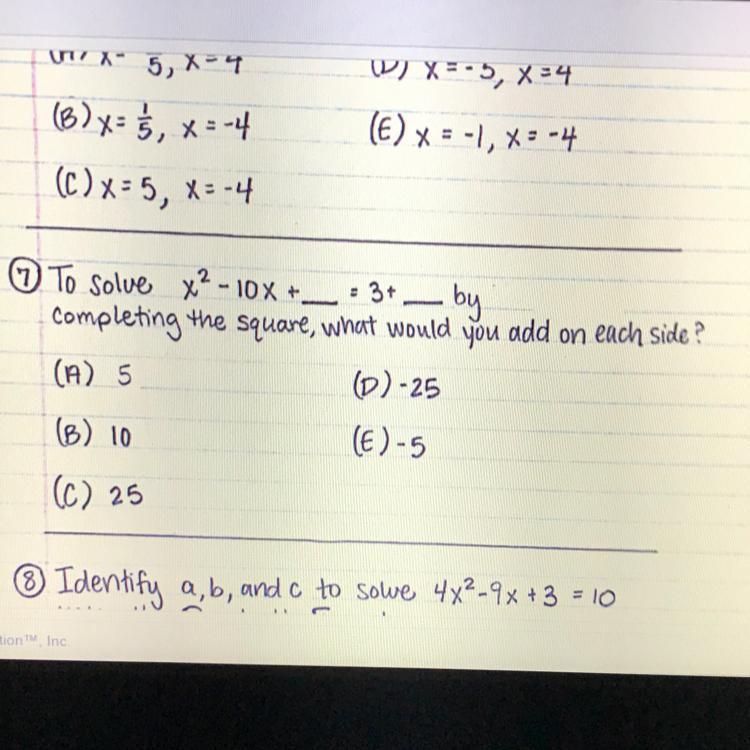 5, x=4
x=-5, x=4
(B) x= 1/5, x=-4
(E) x = -1, x= -4
(C) x=5, x=-4
⑦ To solve x² - 10x + __ = 3+ __ by
completing the square, what would you add on each side?
(A) 5
(D) -25
(B) 10
(E) -5
(C) 25
⑧ Identify a, b, and c to solve 4x²-9x+3 = 10
tion™, Inc.